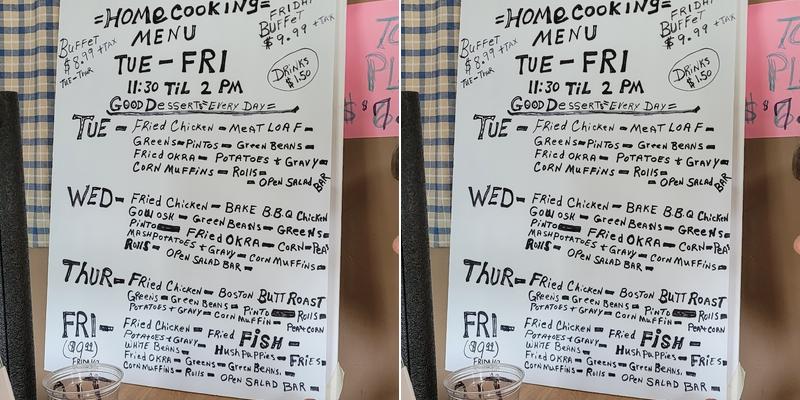 =HOME COOKING=
MENU
BUFFET
$8.99 +TAX
TUE-THUR
FRIDAY
BUFFET
$9.99 +TAX
TUE-FRI
11:30 TIL 2 PM
DRINKS
$1.50
GOOD DESSERTS=EVERY DAY=
TUE- FRied Chicken - MEAT LOAF -
GREENS - PINTOS - GREEN BEANS -
FRied OKRA - POTATOES + GRAVY -
CORN MUFFINS - ROLLS -
- OPEN SALAD BAR
WED- FRied Chicken - BAKE B.B.Q Chicken
GOULOSH - GREEN BEANS - GREENS -
PINTO FRied OKRA - CORN - PEA
MASHPOTATOES + GRAVY - CORN MUFFINS -
ROLLS - OPEN SALAD BAR -
THUR- FRied Chicken - BOSTON BUTT ROAST
GREENS - GREEN BEANS - PINTO ROLLS -
POTATOES + GRAVY - CORN MUFFIN - PEA+CORN
FRI- FRied Chicken - FRied FISH -
$9.99 POTATOES + GRAVY - HUSHPUPPIES - FRIES -
WHITE BEANS -
FRIDAY FRied OKRA - GREENS - GREEN BEANS.
CORN MUFFINS - ROLLS - OPEN SALAD BAR -
=HOME COOKING=
MENU
BUFFET
$8.99 +TAX
TUE-THUR
FRIDAY
BUFFET
$9.99 +TAX
TUE-FRI
11:30 TIL 2 PM
DRINKS
$1.50
GOOD DESSERTS=EVERY DAY=
TUE- FRied Chicken - MEAT LOAF -
GREENS - PINTOS - GREEN BEANS -
FRied OKRA - POTATOES + GRAVY -
CORN MUFFINS - ROLLS -
- OPEN SALAD BAR
WED- FRied Chicken - BAKE B.B.Q Chicken
GOULOSH - GREEN BEANS - GREENS -
PINTO FRied OKRA - CORN - PEA
MASHPOTATOES + GRAVY - CORN MUFFINS -
ROLLS - OPEN SALAD BAR -
THUR- FRied Chicken - BOSTON BUTT ROAST
GREENS - GREEN BEANS - PINTO ROLLS -
POTATOES + GRAVY - CORN MUFFIN - PEA+CORN
FRI- FRied Chicken - FRied FISH -
$9.99 POTATOES + GRAVY - HUSHPUPPIES - FRIES -
WHITE BEANS -
FRIDAY FRied OKRA - GREENS - GREEN BEANS.
CORN MUFFINS - ROLLS - OPEN SALAD BAR -